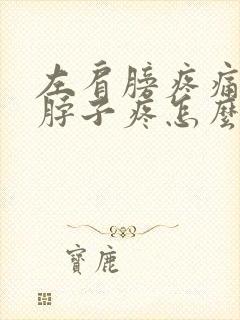 左肩膀疼痛
脖子疼怎麼
寶鹿